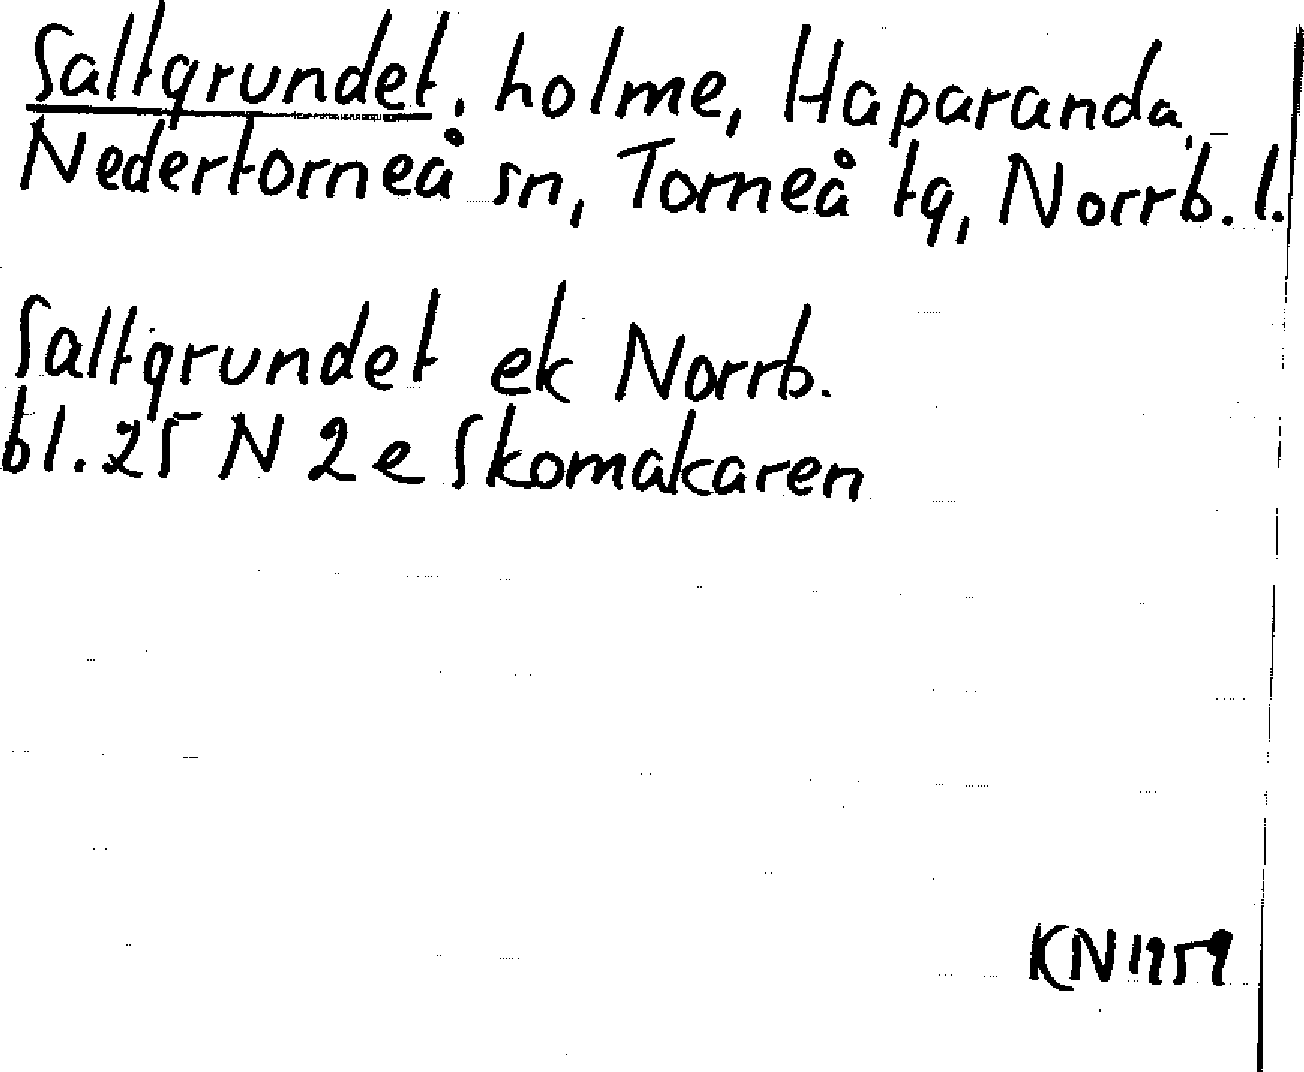 Saltgrundet, holme, Haparanda,
Nedertorneå sn, Torneå tg, Norrb. l.
Saltgrundet ek Norrb.
bl. 25 N 2 e Skomakaren
KN 1959